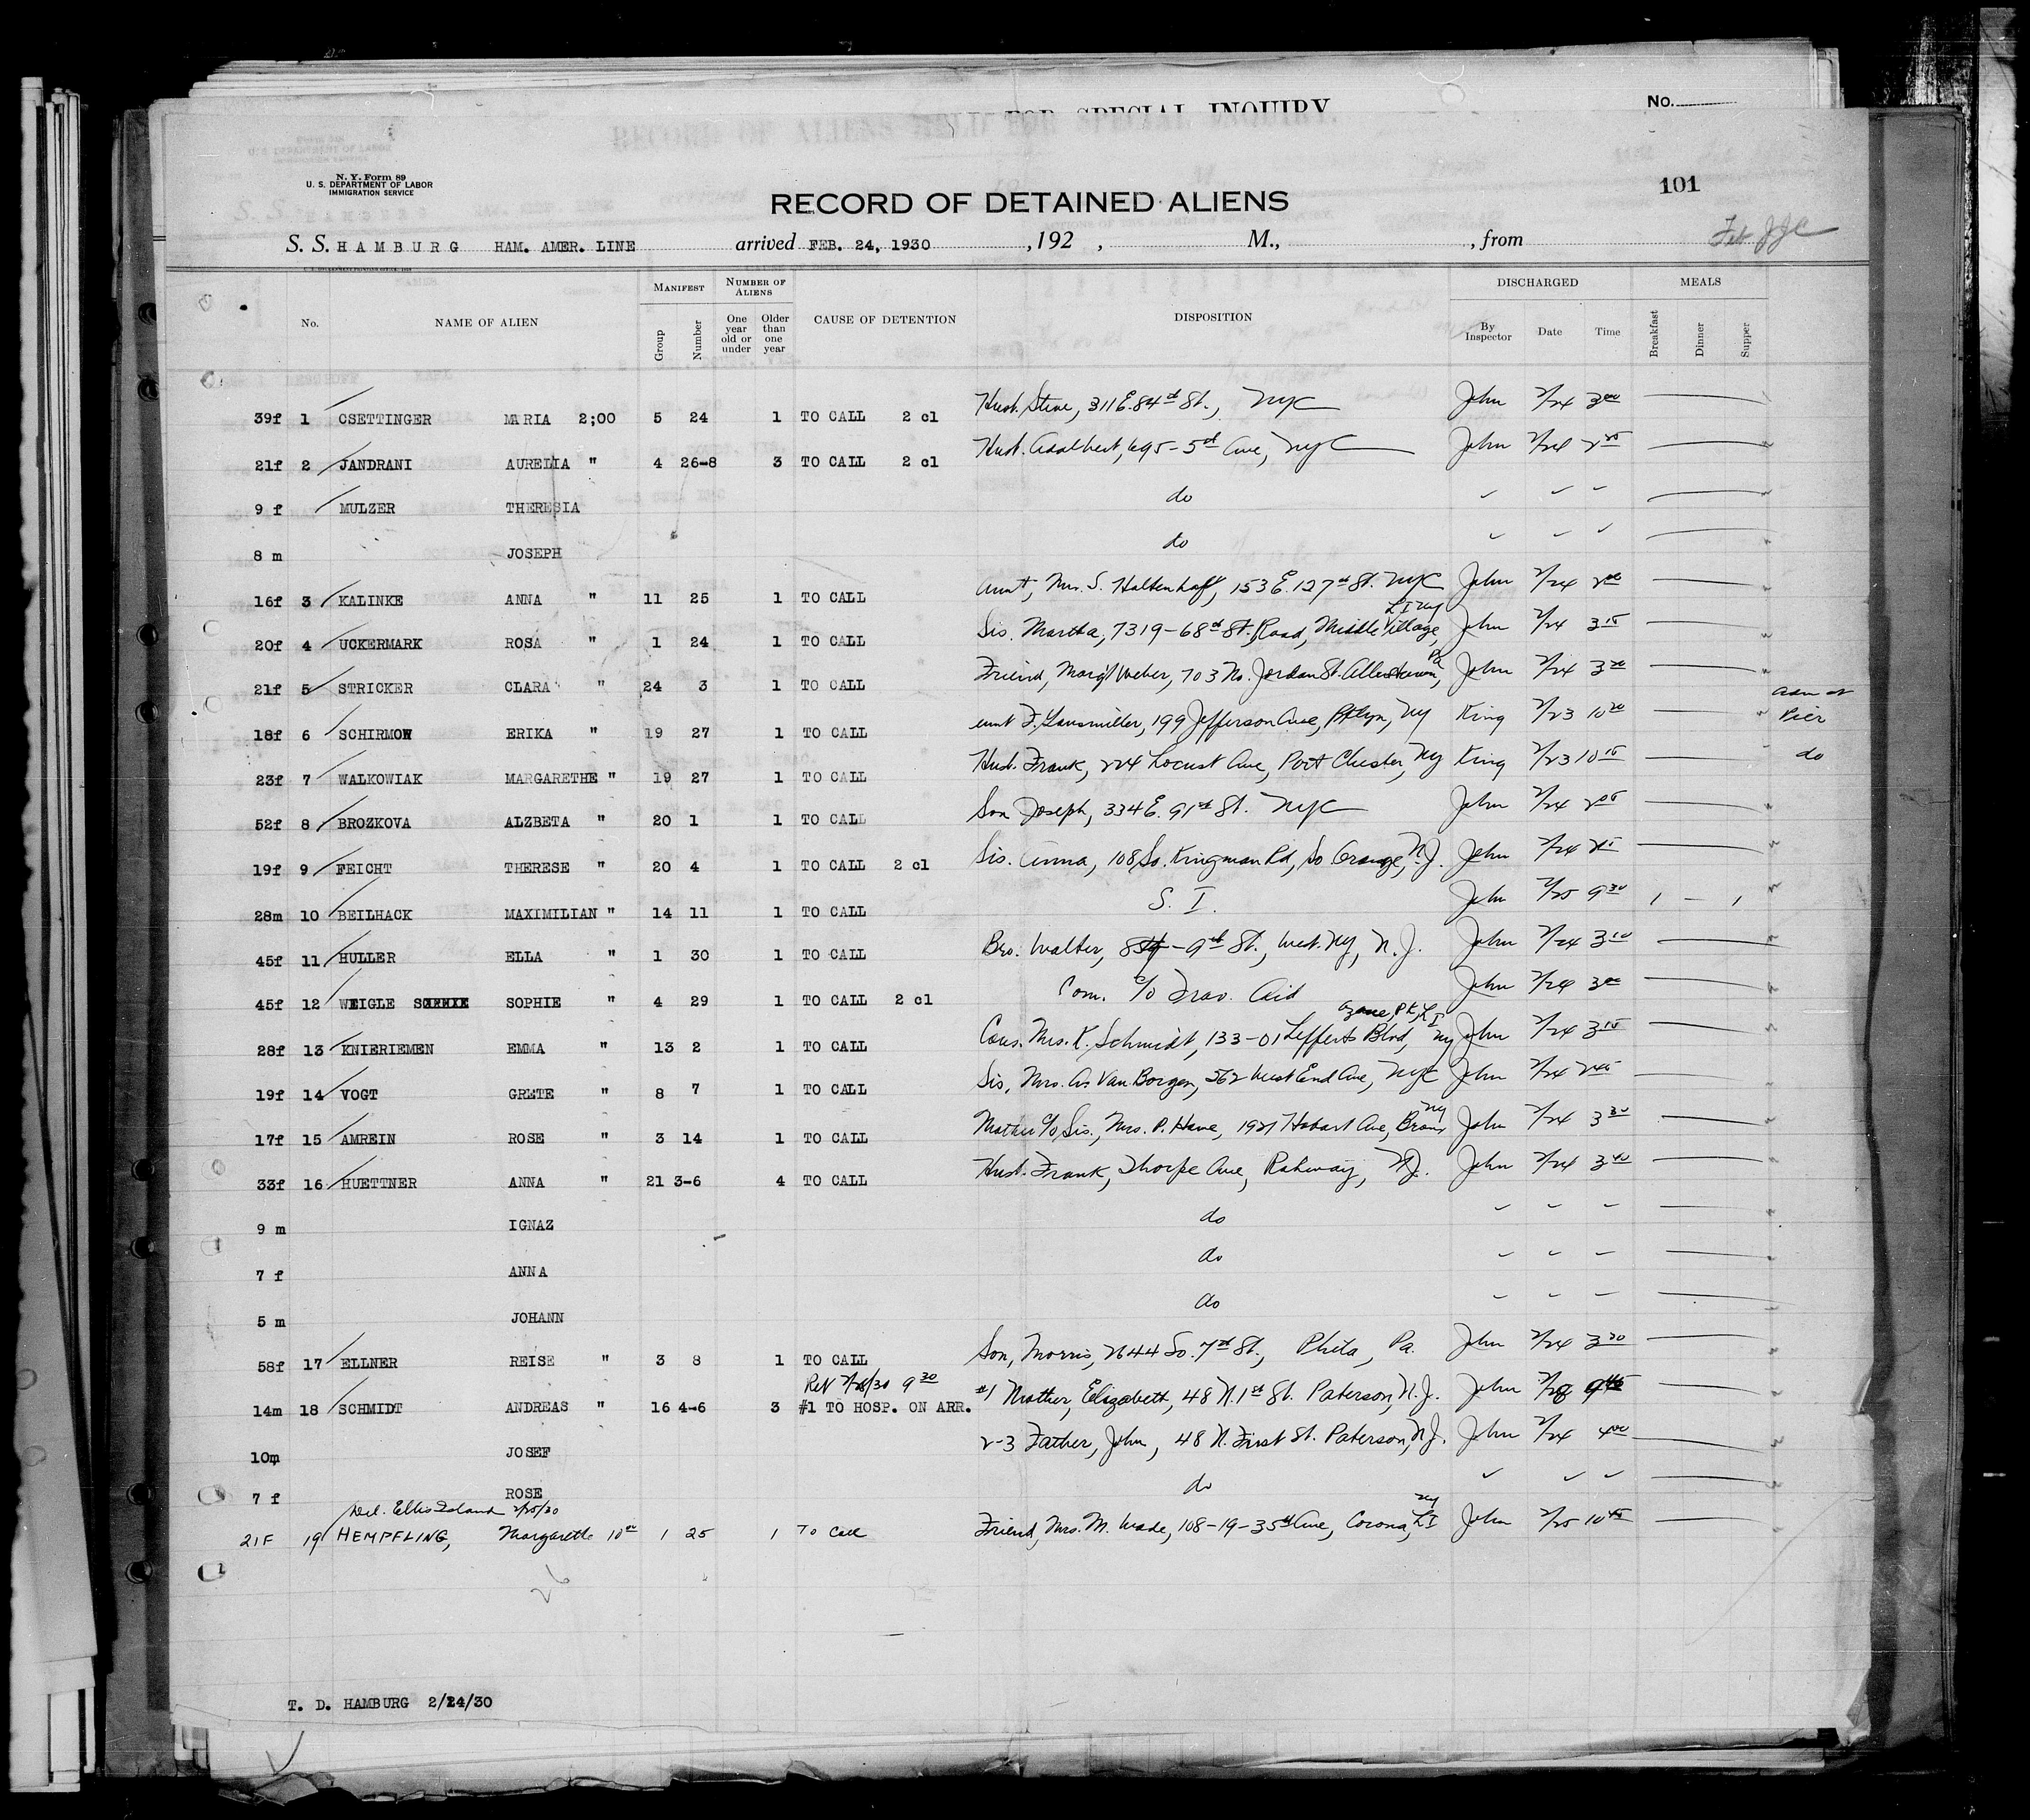 FOR SPECIAL INQUIRY.
No.
N. Y. Form 89
U. S. DEPARTMENT OF LABOR
IMMIGRATION SERVICE
101
RECORD OF DETAINED ALIENS
S. S. HAMBURG HAM. AMER. LINE arrived FEB. 24, 1930, 192 , M., , from
No. NAME OF ALIEN MANIFEST Group Number NUMBER OF ALIENS One year old or under Older than one year CAUSE OF DETENTION DISPOSITION DISCHARGED By Inspector Date Time MEALS Breakfast Dinner Supper
39f 1 CSETTINGER MARIA 2;00 5 24 1 TO CALL 2 cl Husb. Steve, 311 E. 84th St., NYC John 2/24 3 00
21f 2 JANDRANI AURELIA " 4 26-8 3 TO CALL 2 cl Husb. Adalbert, 695-5th Ave, NYC John 2/24
9 f MULZER THERESIA do
8 m JOSEPH do
16f 3 KALINKE ANNA " 11 25 1 TO CALL Aunt, Mrs. S. Haltenhoff, 153 E. 127th St. NYC John 2/24 2 00
20f 4 UCKERMARK ROSA " 1 24 1 TO CALL Sis. Martha, 7319-68th St. Road, Middle Village, L I NY John 2/24 3 15
21f 5 STRICKER CLARA " 24 3 1 TO CALL Friend, Marg't Weber, 703 No. Jordan St. Allentown, Pa John 2/24 3 20
18f 6 SCHIRMOW ERIKA " 19 27 1 TO CALL Aunt F. Lansmiller, 199 Jefferson Ave, Bklyn, NY King 2/23 10 20 Adm at Pier
23f 7 WALKOWIAK MARGARETHE " 19 27 1 TO CALL Husb. Frank, 224 Locust Ave, Port Chester, NY King 2/23 10 15 do
52f 8 BROZKOVA ALZBETA " 20 1 1 TO CALL Son Joseph, 334 E. 91st St. NYC John 2/24
19f 9 FEICHT THERESE " 20 4 1 TO CALL 2 cl Sis. Anna, 108 So. Kingman Rd, So Orange, N.J. John 2/24
28m 10 BEILHACK MAXIMILIAN " 14 11 1 TO CALL S. I. John 2/25 9 30 1 - 1
45f 11 HULLER ELLA " 1 30 1 TO CALL Bro. Walter, -9th St., West. NY, N.J. John 2/24 3 10
45f 12 WEIGLE SOPHIE SOPHIE " 4 29 1 TO CALL 2 cl Com. c/o Trav. Aid John 2/24 3 00
28f 13 KNIERIEMEN EMMA " 13 2 1 TO CALL Cous. Mrs. K. Schmidt, 133-01 Lefferts Blvd, Ozone, PK, L I NY John 2/24 3 15
19f 14 VOGT GRETE " 8 7 1 TO CALL Sis, Mrs. A. Van Borgen, 562 West End Ave, NYC John 2/24 2 45
17f 15 AMREIN ROSE " 3 14 1 TO CALL Mother c/o Sis., Mrs. P. Hane, 1921 Hobart Ave, Bronx NY John 2/24 3 30
33f 16 HUETTNER ANNA " 21 3-6 4 TO CALL Husb. Frank, Thorpe Ave, Rahway, N.J. John 2/24 3 40
9 m IGNAZ do
7 f ANNA do
5 m JOHANN do
58f 17 ELLNER REISE " 3 8 1 TO CALL Son, Morris, 2644 So. 7th St., Phila, Pa. John 2/24 3 20
Rev 2/28/30 9 30
14m 18 SCHMIDT ANDREAS " 16 4-6 3 #1 TO HOSP. ON ARR. #1 Mother, Elizabeth, 48 N. 1st St. Paterson, N.J. John 2/28 9 45
10m JOSEF 2-3 Father, John, 48 N. First St. Paterson, N.J. John 2/24 4 00
7 f ROSE do
Del. Ellis Island 2/25/30
21F 19 HEMPFLING, Margarethe 10 00 1 25 1 To Call Friend, Mrs. M. Wade, 108-19-35th Ave, Corona, L I NY John 2/25 10 45
26
T. D. HAMBURG 2/24/30